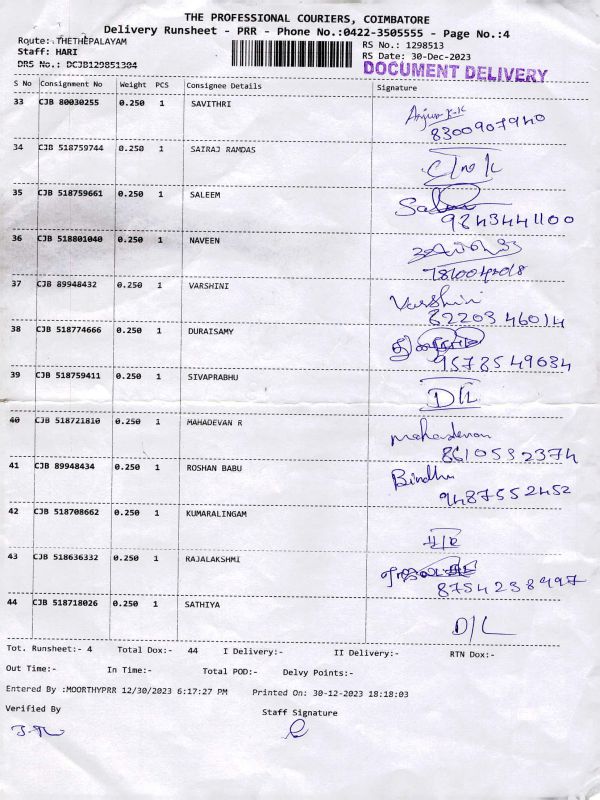 THE PROFESSIONAL COURIERS, COIMBATORE
Delivery Runsheet - PRR - Phone No.:0422-3505555 - Page No.:4
Route: THETHEPALAYAM
Staff: HARI
DRS No.: DCJB129851304
RS No.: 1298513
RS Date: 30-Dec-2023
DOCUMENT DELIVERY
S No Consignment No Weight PCS Consignee Details Signature
33 CJB 80030255 0.250 1 SAVITHRI
8300907940
34 CJB 518759744 0.250 1 SAIRAJ RAMDAS
35 CJB 518759661 0.250 1 SALEEM
9843441100
36 CJB 518801040 0.250 1 NAVEEN
37 CJB 89948432 0.250 1 VARSHINI Varshini
82203 46014
38 CJB 518774666 0.250 1 DURAISAMY
9578549634
39 CJB 518759411 0.250 1 SIVAPRABHU D/L
40 CJB 518721810 0.250 1 MAHADEVAN R mahadevan
8610532374
41 CJB 89948434 0.250 1 ROSHAN BABU Bindhu
9487552452
42 CJB 518708662 0.250 1 KUMARALINGAM
43 CJB 518636332 0.250 1 RAJALAKSHMI
8754238497
44 CJB 518718026 0.250 1 SATHIYA D/L
Tot. Runsheet:- 4 Total Dox:- 44 I Delivery:- II Delivery:- RTN Dox:-
Out Time:- In Time:- Total POD:- Delvy Points:-
Entered By :MOORTHYPRR 12/30/2023 6:17:27 PM Printed On: 30-12-2023 18:18:03
Verified By Staff Signature